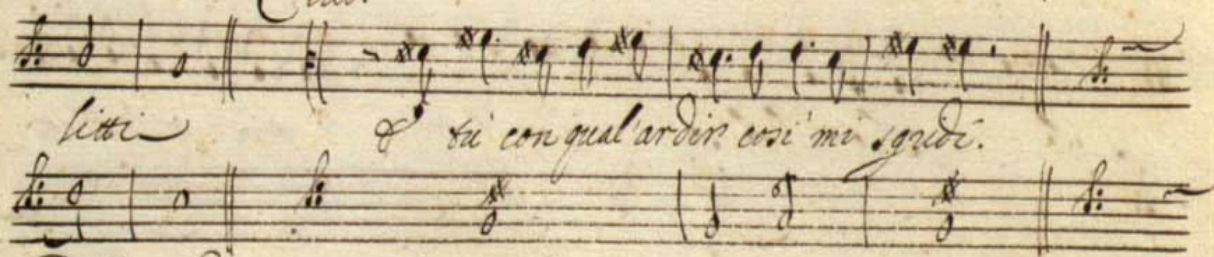 litti & tù con qual'ardir così mi sgridi.